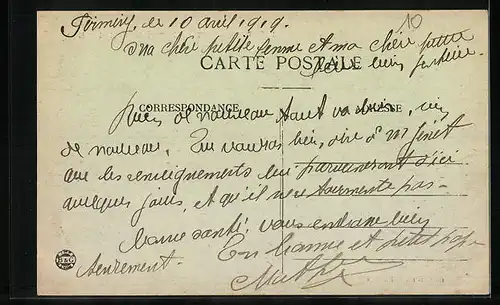 Firminy, le 10 avril 1919. 10
Ma chère petite femme et ma chère petite
CARTE POSTALE
CORRESPONDANCE
Rien de nouveau tout va bien, rien
de nouveau. Tu voudras bien dire à Mr
que les renseignements lui parviendront d'ici
quelques jours, et qu'il ne se tourmente pas.
Bonne santé, vous embrasse bien
Ton homme et petit papa
B&G